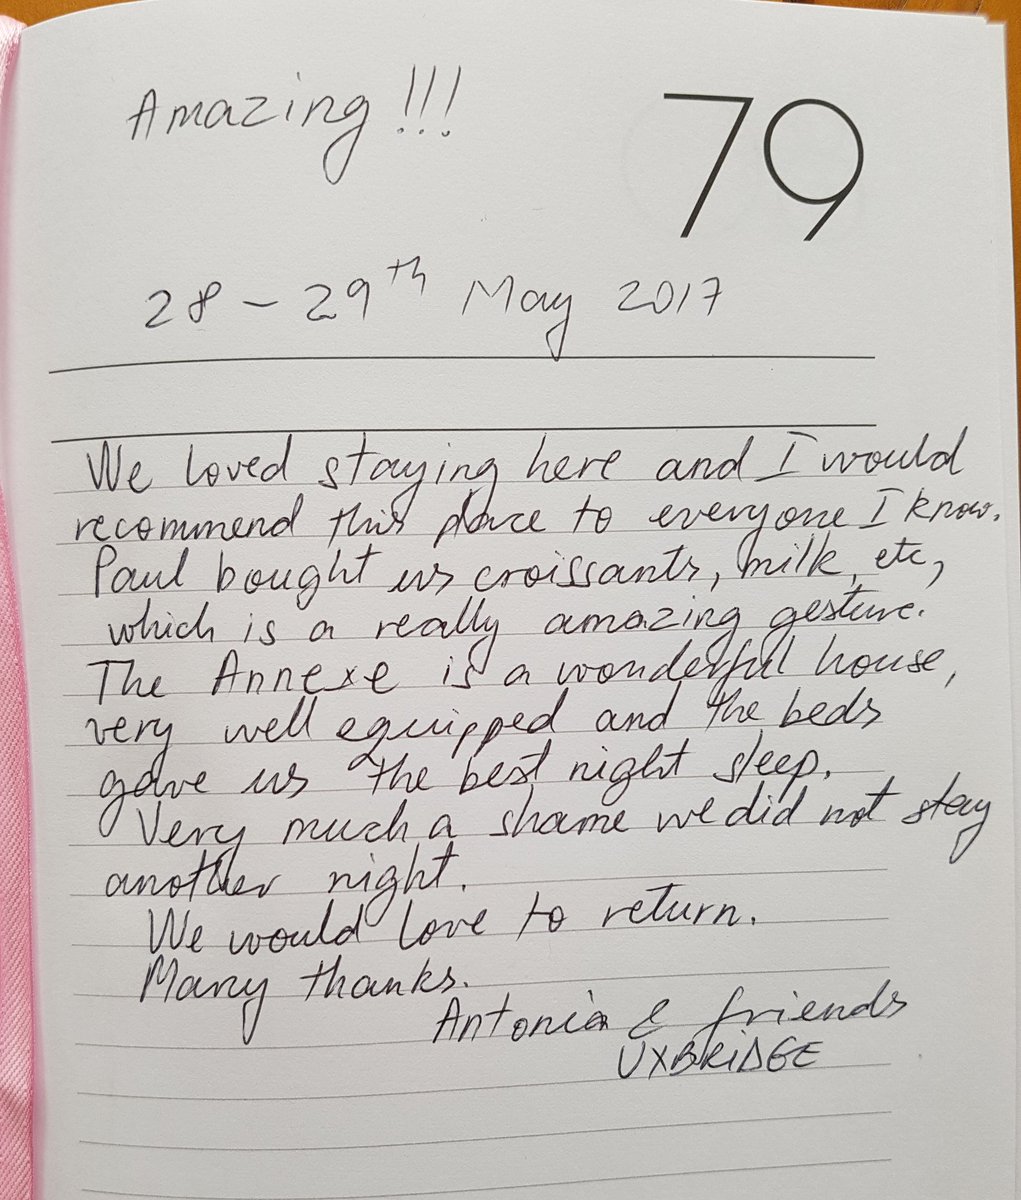 Amazing !!!
79
28 - 29th May 2017
We loved staying here and I would
recommend this place to everyone I know.
Paul bought us croissants, milk, etc,
which is a really amazing gesture.
The Annexe is a wonderful house,
very well equipped and the beds
gave us the best night sleep.
Very much a shame we did not stay
another night.
We would love to return.
Many thanks.
Antonia & friends
UXBRIDGE